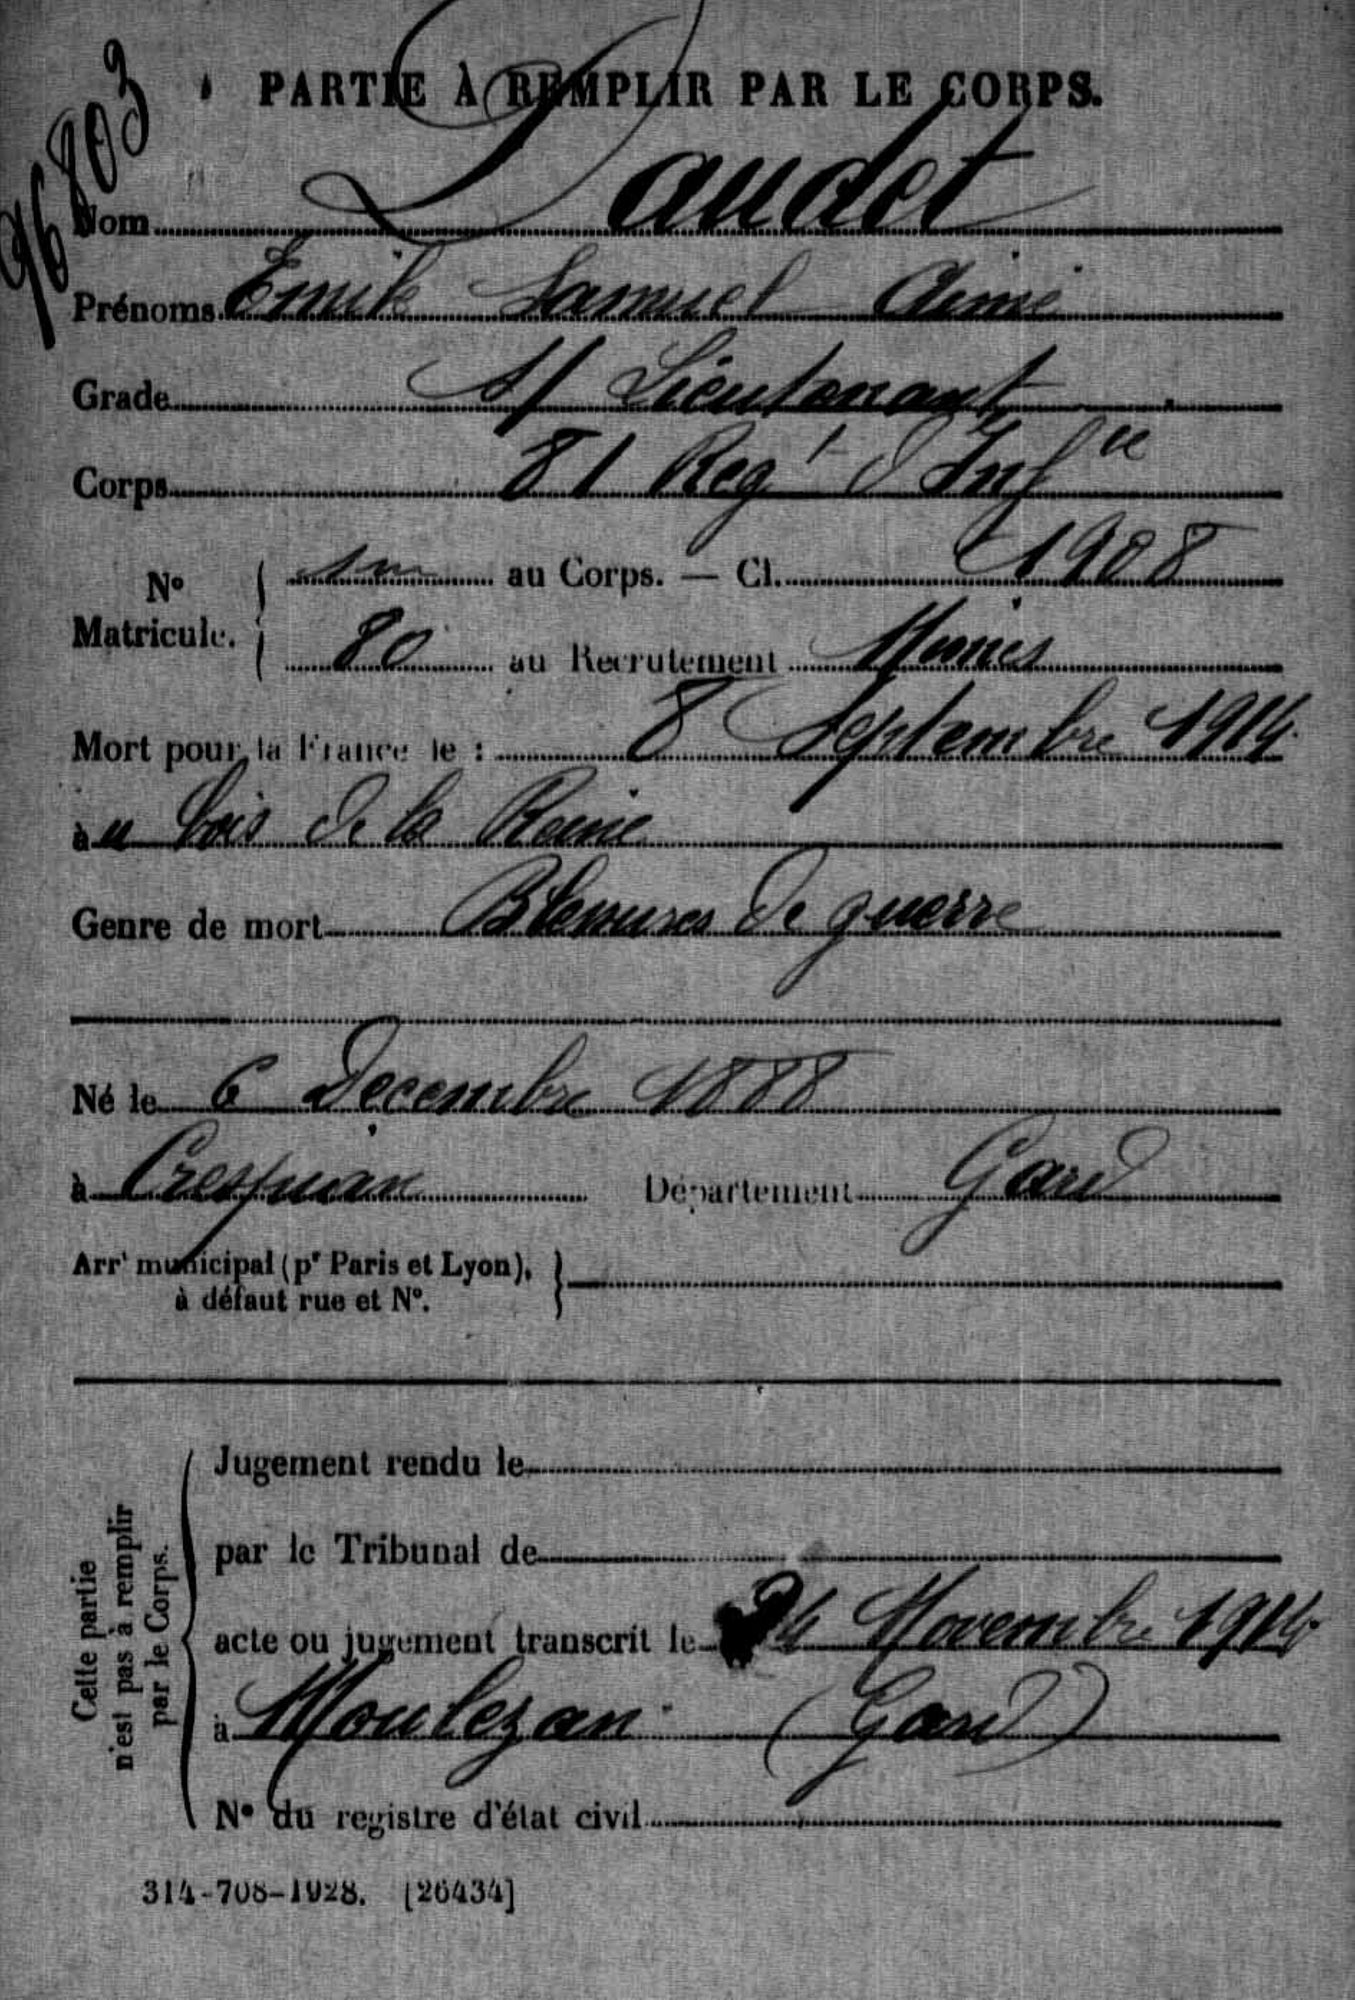 96803
PARTIE À REMPLIR PAR LE CORPS.
Nom Daudet
Prénoms Emile Samuel Aimé
Grade S/ Lieutenant
Corps 81 Regt d'Infie
N° Matricule. { au Corps. — Cl. 1908
80 au Recrutement Nimes
Mort pour la France le : 8 Septembre 1914
au bois de la Reine
Genre de mort Blessures de guerre
Né le 6 Decembre 1888
à Crespian Département Gard
Arrt municipal (pr Paris et Lyon), }
à défaut rue et N°.
Cette partie
n'est pas à remplir
par le Corps.
Jugement rendu le
par le Tribunal de
acte ou jugement transcrit le 24 Novembre 1914
à Moulezan (Gard)
N° du registre d'état civil
314-708-1928. [26434]